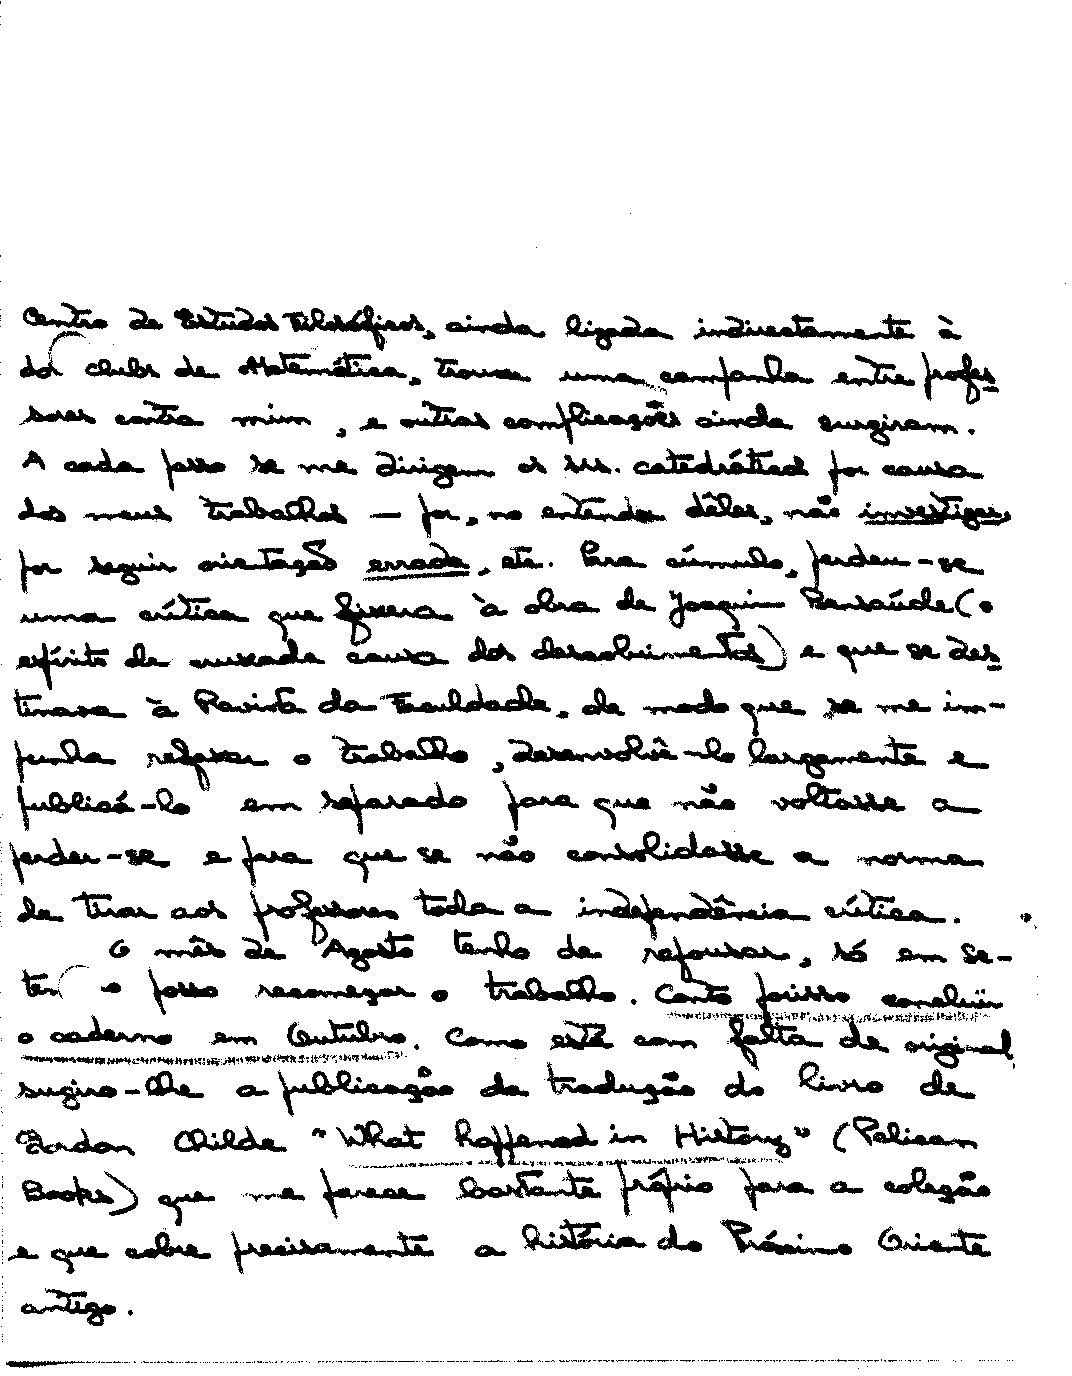 Centro de Estudos Filosóficos, ainda ligada indirectamente à
dos clubs de Matemática, trouxe uma campanha entre profes
sores contra mim, e outras complicações ainda surgiram.
A cada passo se me dirigem os srs. catedráticos por causa
dos meus trabalhos — por, no entender dêles, não investigar,
por seguir orientação errada, etc. Para cúmulo, perdeu-se
uma crítica que fizera à obra de Joaquim Bensaúde (o
espírito de cruzada causa dos descobrimentos) e que se des
tinava à Revista da Faculdade, de modo que se me im-
punha refazer o trabalho, desenvolvê-lo largamente e
publicá-lo em separado para que não voltasse a
perder-se e para que se não consolidasse a norma
de tirar aos professores toda a independência crítica.
O mês de Agosto tenho de repousar, só em Se-
tem o posso recomeçar o trabalho. Conto porisso concluir
o caderno em Outubro. Como está com falta de original
sugiro-lhe a publicação da tradução do livro de
Gordon Childe "What happened in History" (Pelican
Books) que me parece bastante próprio para a coleção
e que cobre precisamente a história do Próximo Oriente
antigo.